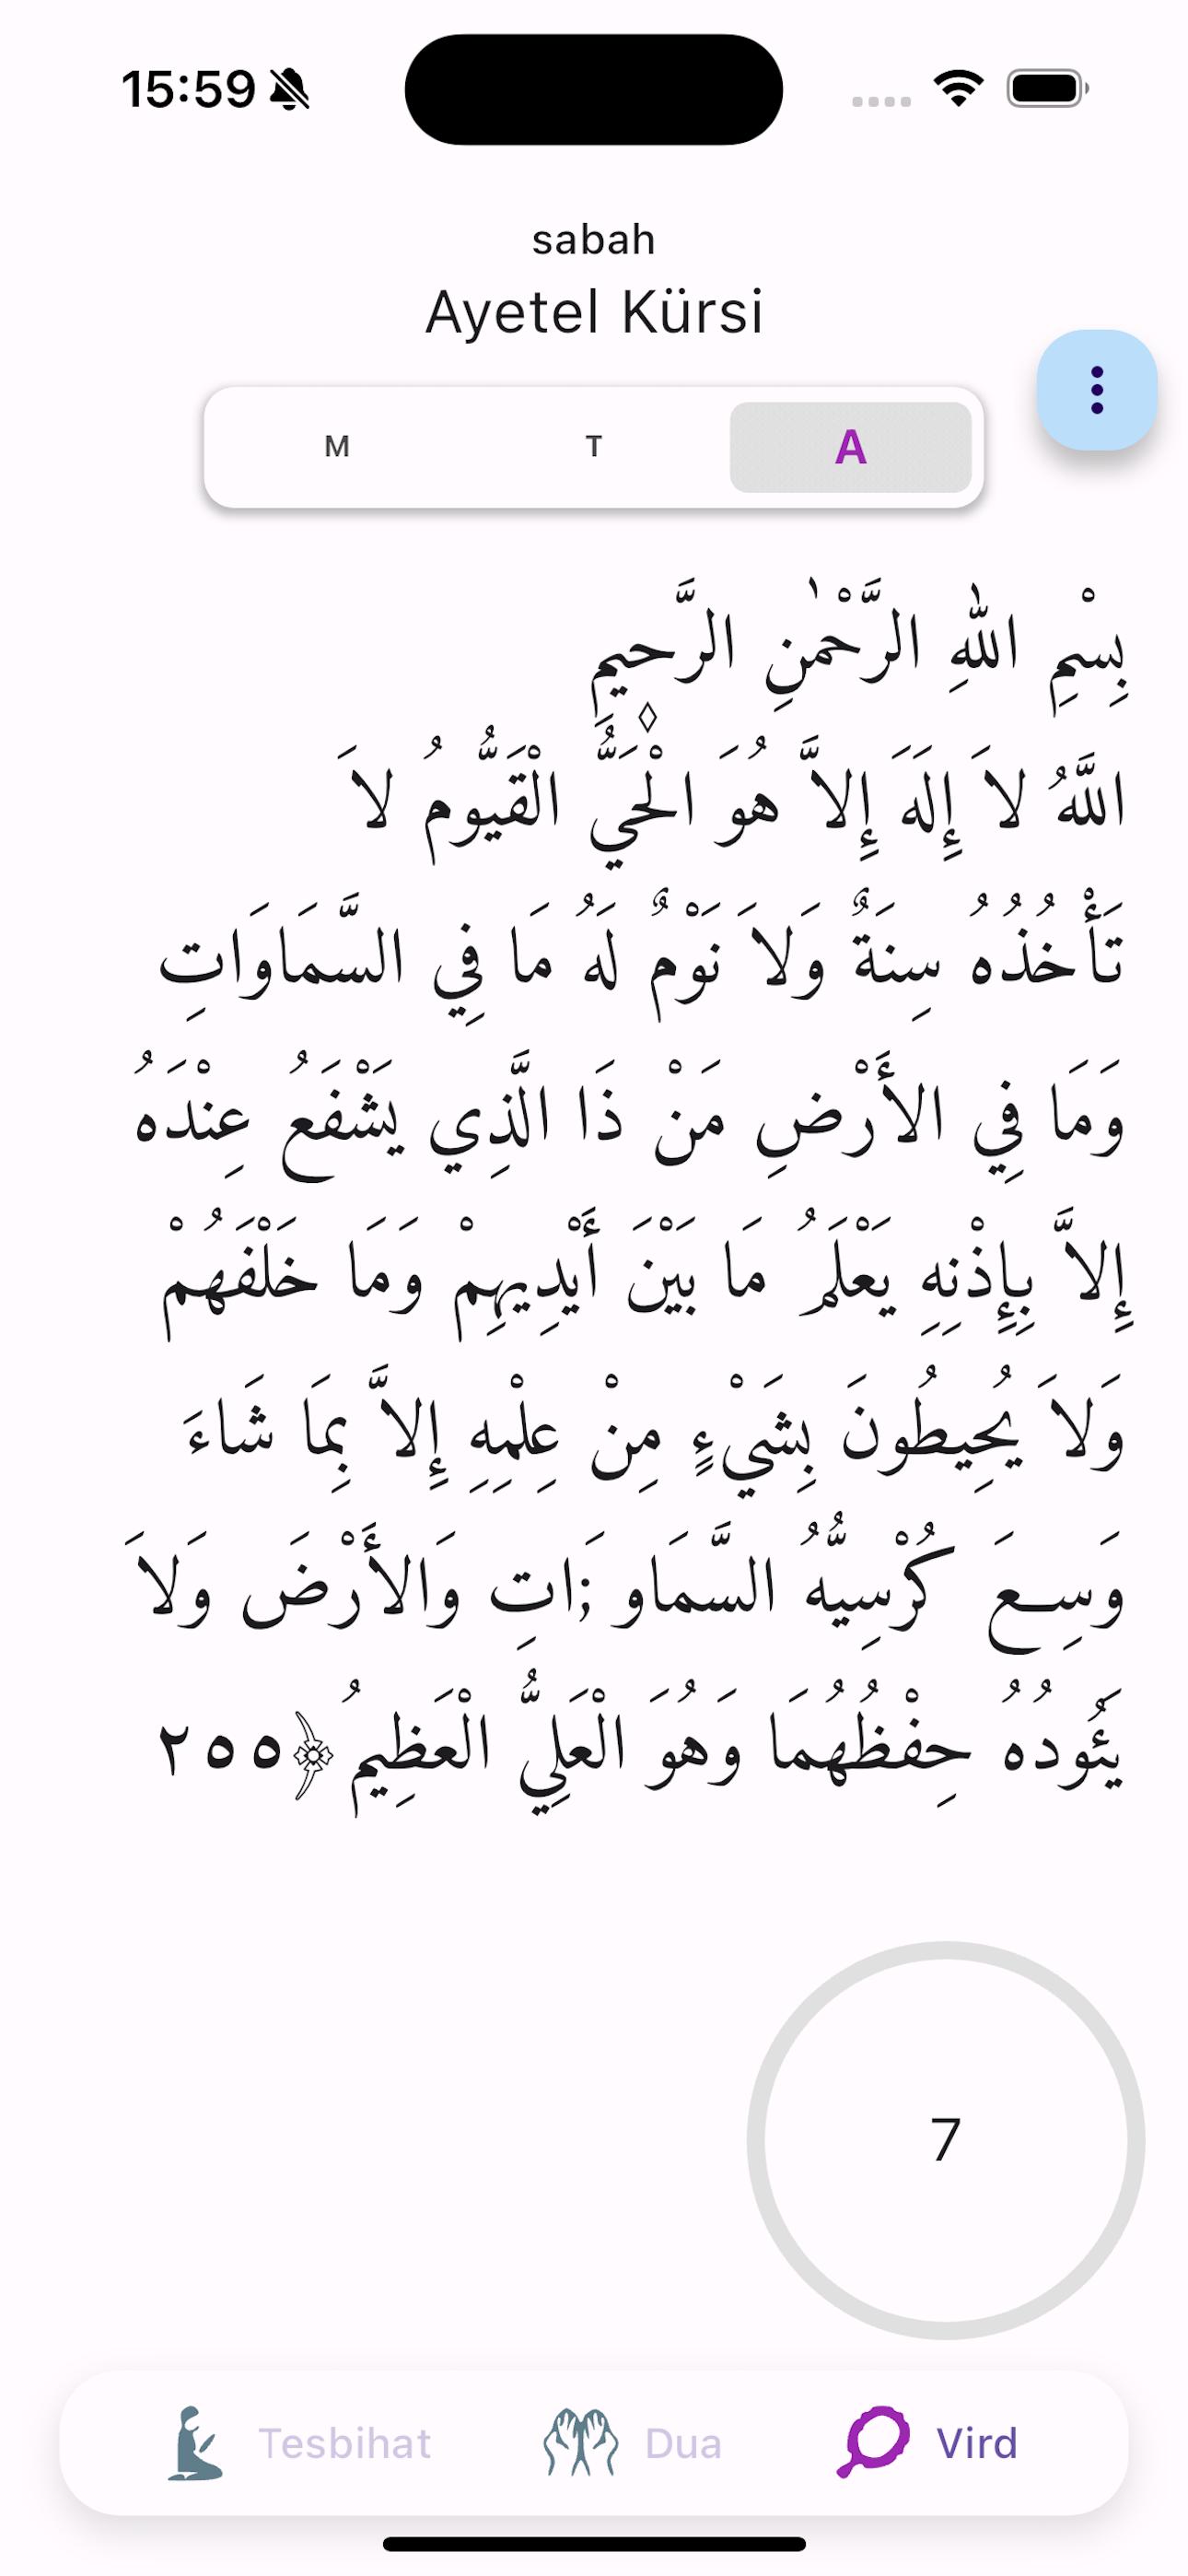 15:59
sabah
Ayetel Kürsi
M T A
بِسْمِ اللهِ الرَّحْمٰنِ الرَّحيمِ
اللَّهُ لاَ إِلَهَ إِلاَّ هُوَ الْحَيُّ الْقَيُّومُ لاَ
تَأْخُذُهُ سِنَةٌ وَلاَ نَوْمٌ لَهُ مَا فِي السَّمَاوَاتِ
وَمَا فِي الأَرْضِ مَنْ ذَا الَّذِي يَشْفَعُ عِنْدَهُ
إِلاَّ بِإِذْنِهِ يَعْلَمُ مَا بَيْنَ أَيْدِيهِمْ وَمَا خَلْفَهُمْ
وَلاَ يُحِيطُونَ بِشَيْءٍ مِنْ عِلْمِهِ إِلاَّ بِمَا شَاءَ
وَسِـعَ كُرْسِيُّهُ السَّمَاو ;َاتِ وَالأَرْضَ وَلاَ
يَئُودُهُ حِفْظُهُمَا وَهُوَ الْعَلِيُّ الْعَظِيمُ ﴿٢٥٥
7
Tesbihat Dua Vird